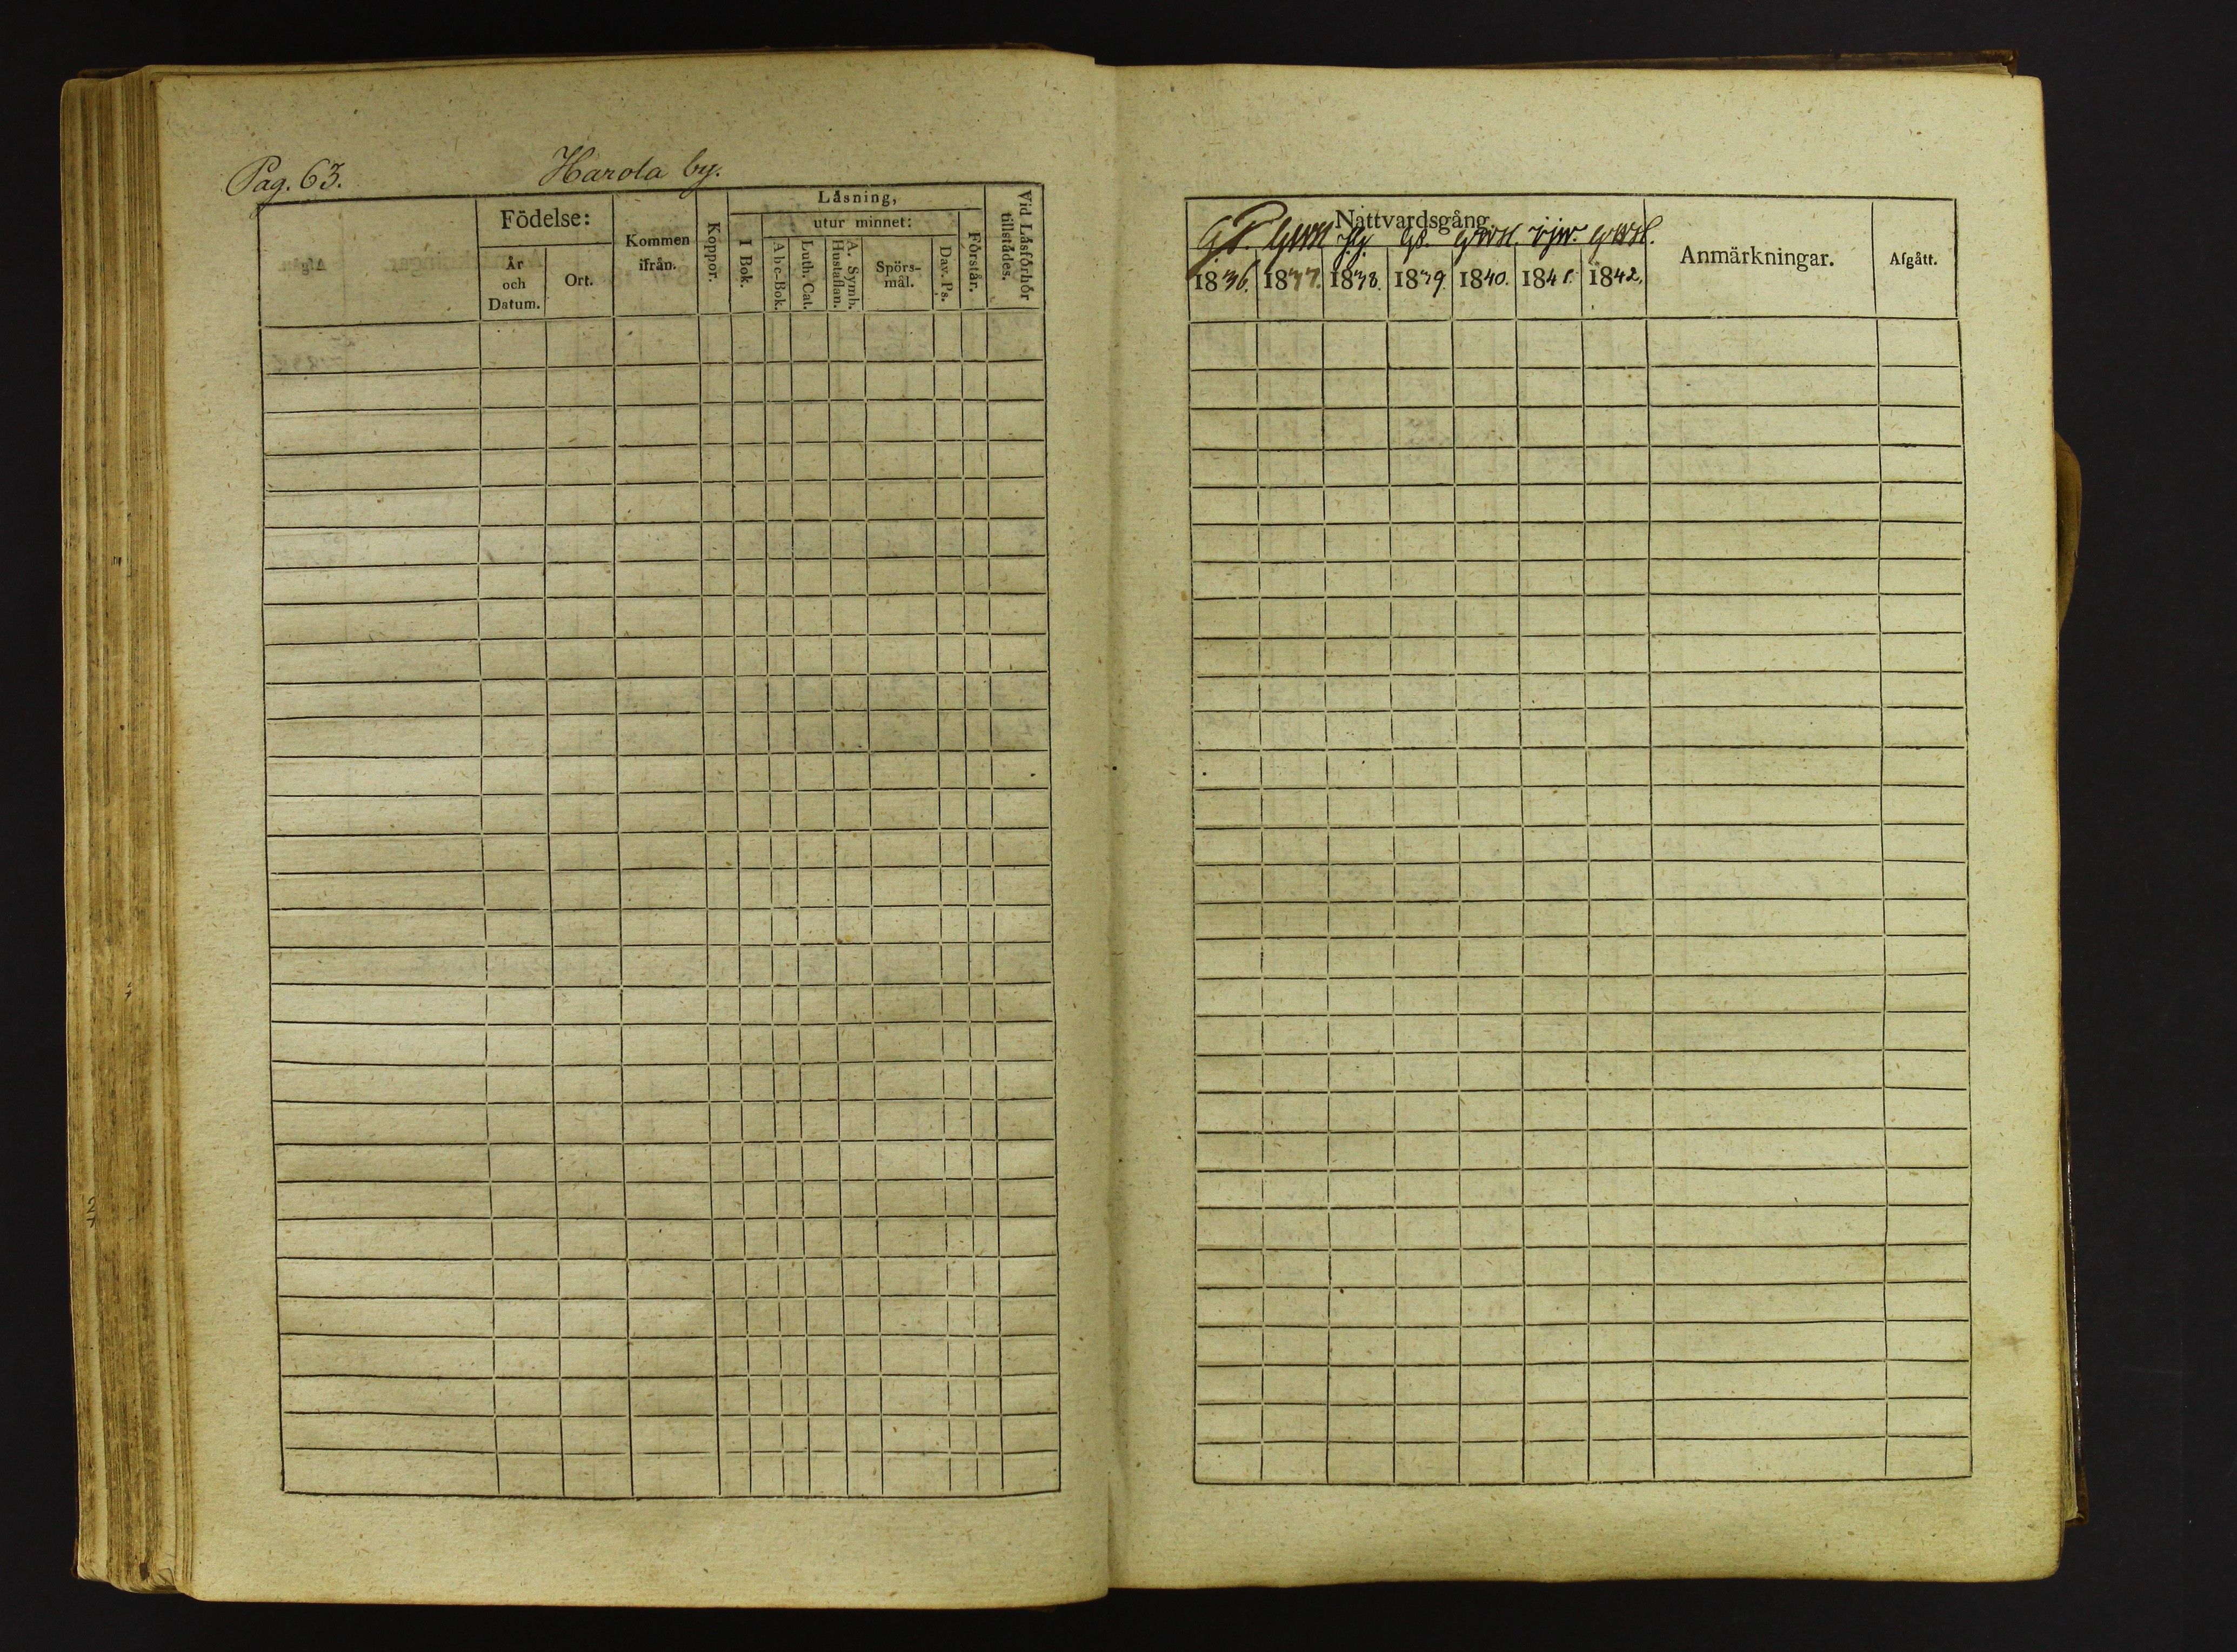 Pag. 63.
Harola by.
Födelse:
År
och
Datum.
Ort.
Kommen
ifrån.
Koppor.
Läsning,
I Bok.
utur minnet:
Abc-Bok.
Luth. Cat.
A. Symb.
Hustaflan.
Spörs-
mål.
Dav. Ps.
Förstår.
Vid Läsförhör
tillstädes.
Nattvardsgång
1836. 1837. 1838. 1839. 1840. 1841. 1842.
Anmärkningar.
Afgått.